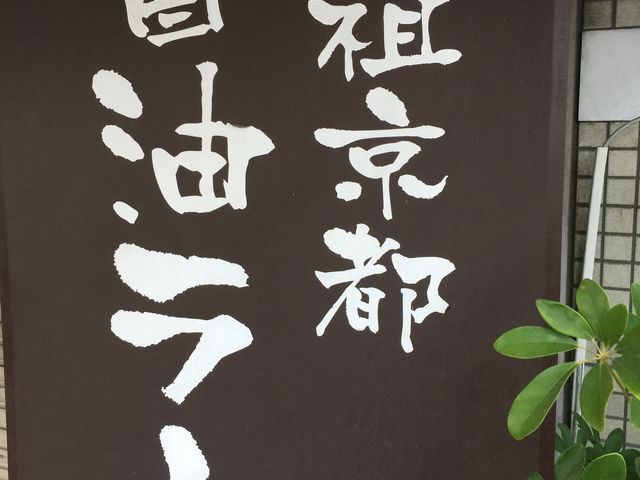 祖京都
油ラー